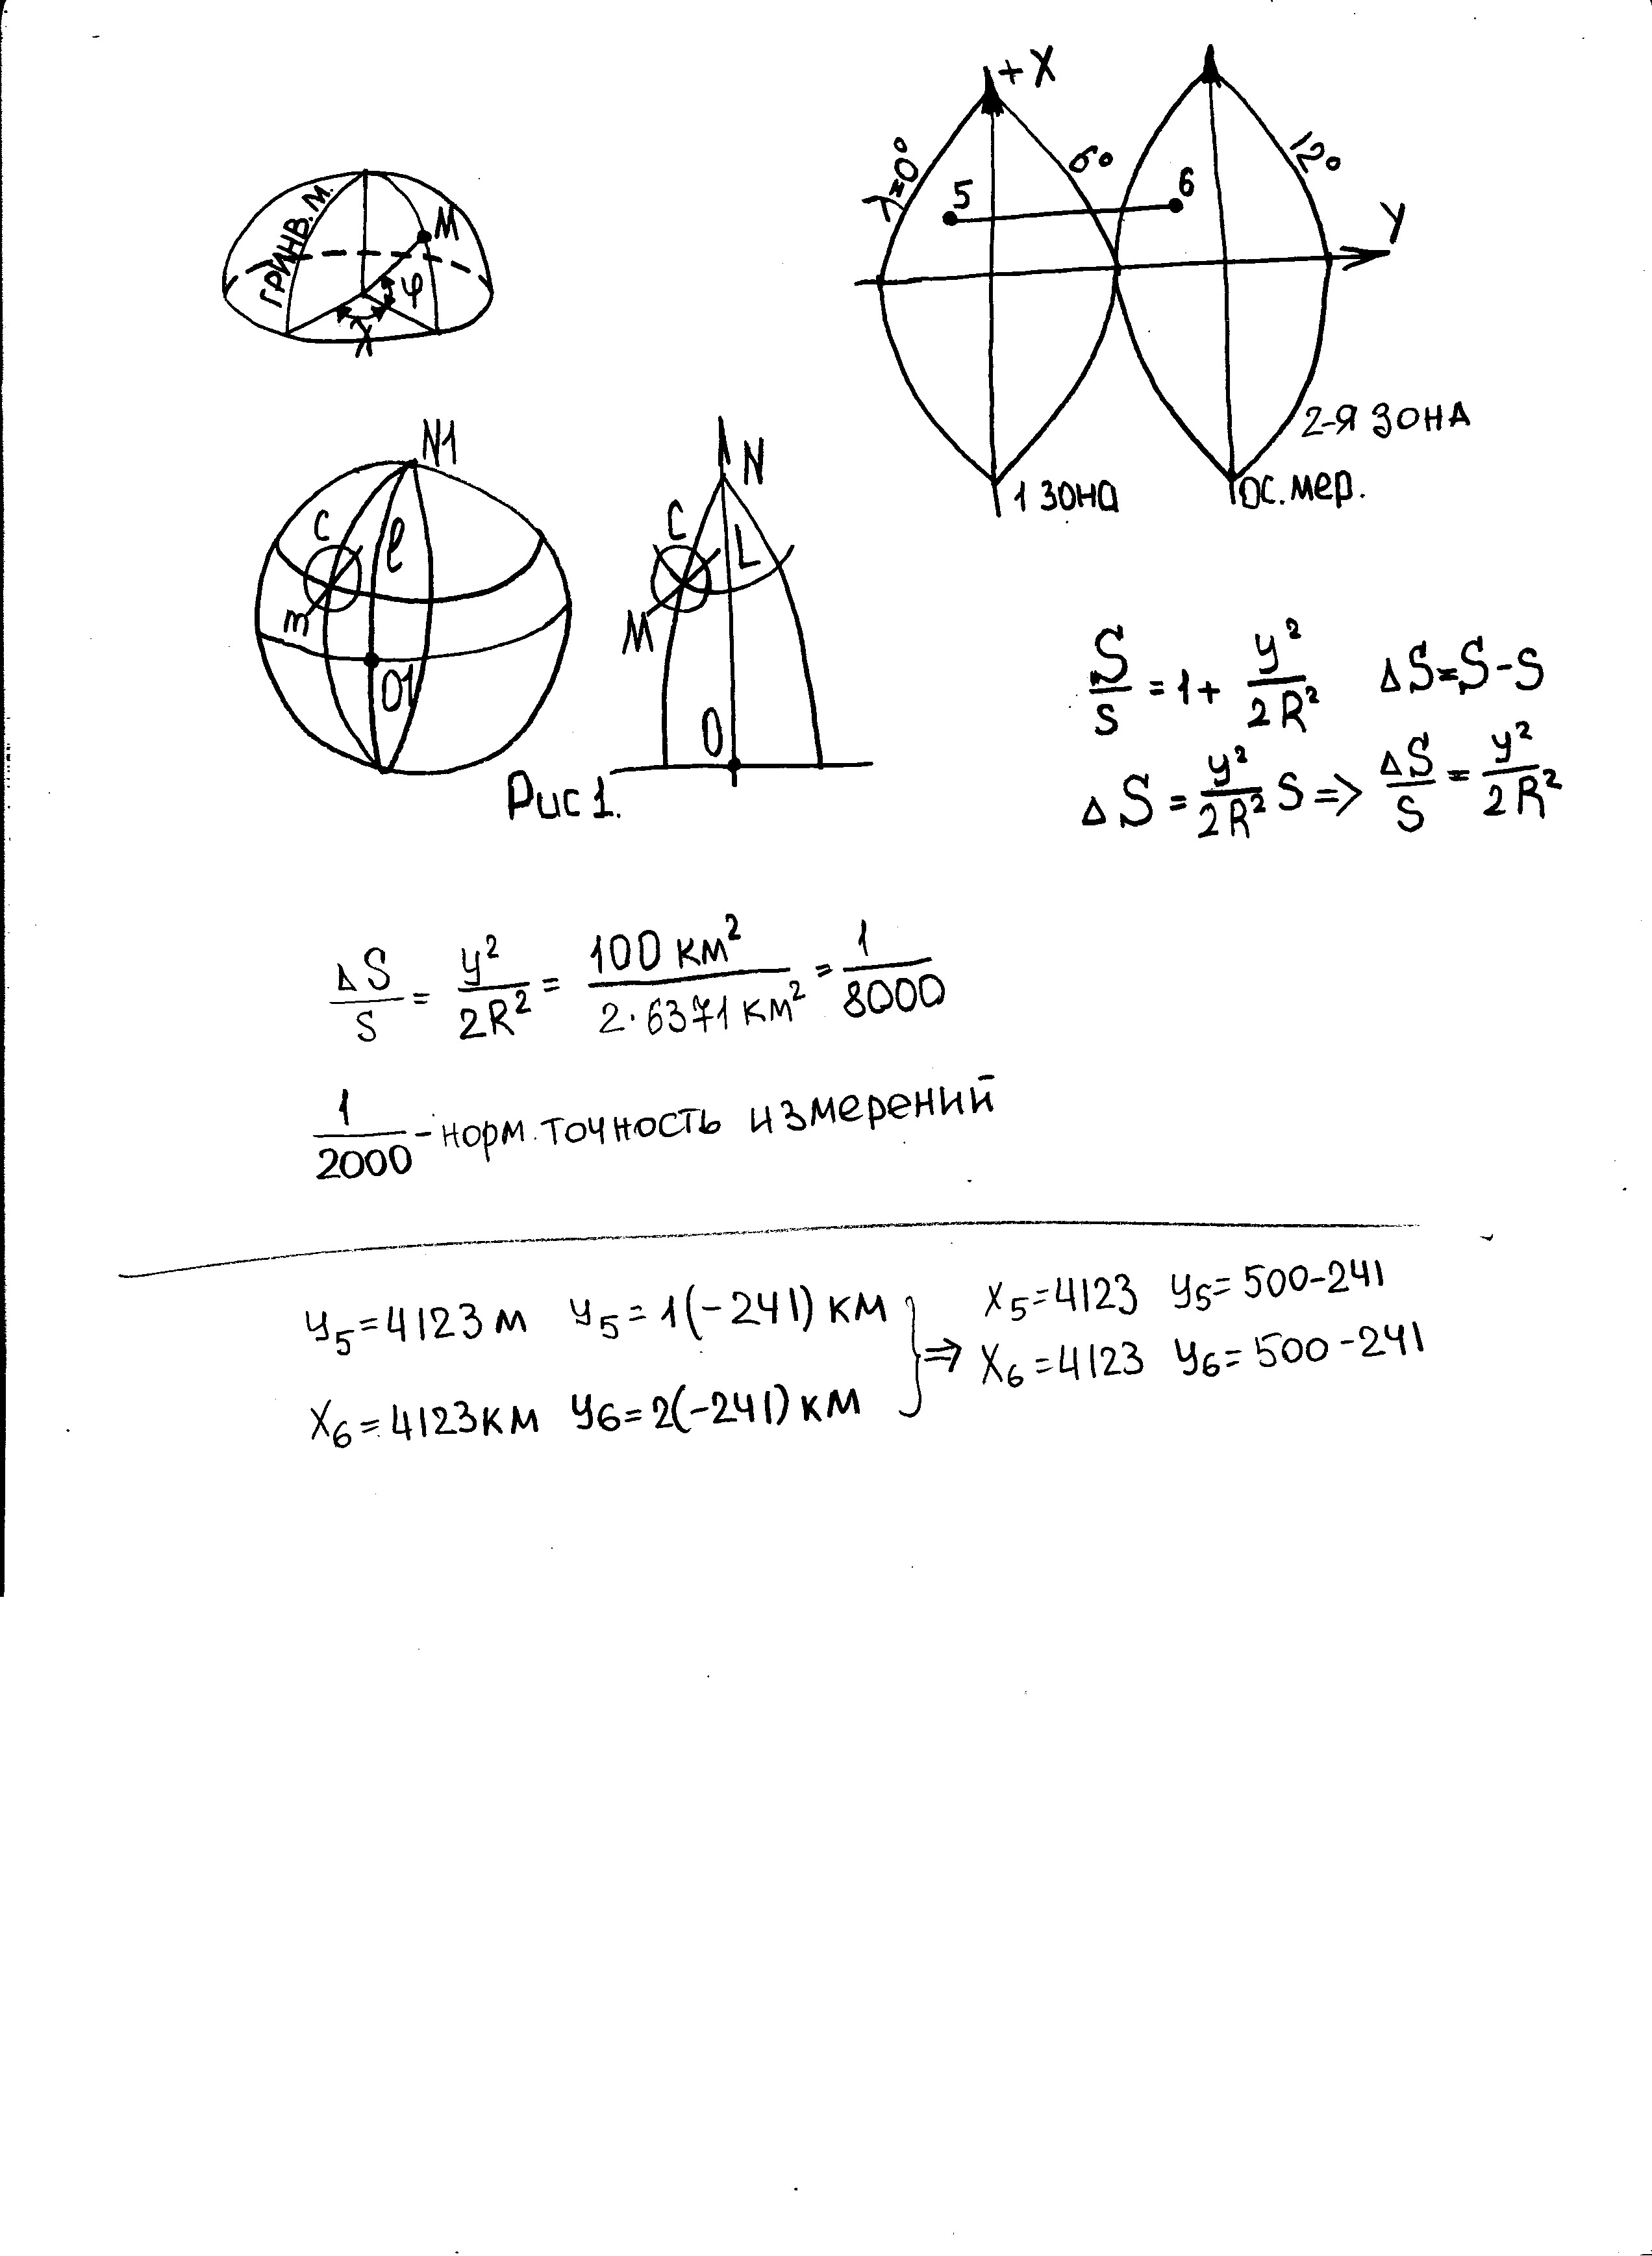 ГРИНВ. М.
M
φ
λ
+X
λ=0°
6°
12°
5
6
Y
2-Я ЗОНА
1 ЗОНА
ОС. мер.
N1
C
ℓ
m
O1
N
C
L
M
O
Рис 1.
S/s = 1 + y²/2R² ΔS=S-S
ΔS = y²/2R² S => ΔS/S = y²/2R²
ΔS/S = y²/2R² = 100 км²/2·6371 км² = 1/8000
1/2000 - норм. точность измерений
y₅=4123 м y₅=1(-241) км
X₆=4123 км y₆=2(-241) км
=> X₅=4123 y₅=500-241
X₆=4123 y₆=500-241